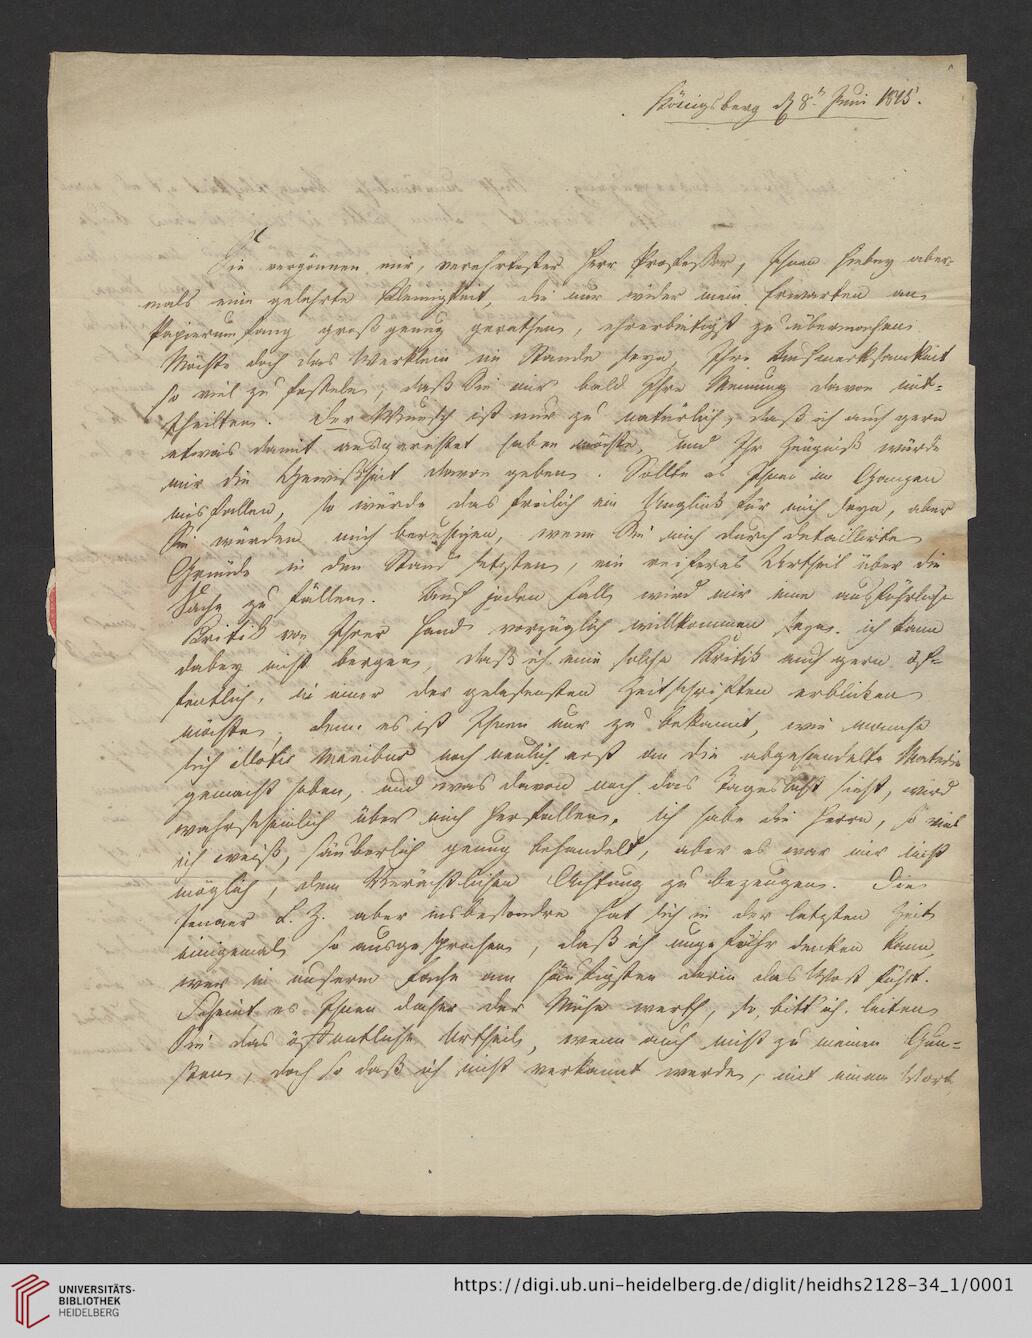 Königsberg d 8n Juni 1815.
Sie vergönnen mir, verehrtester Herr Professor, Ihnen hiebey aber-
mals eine gelehrte Kleinigkeit, die nur wider mein Erwarten an
Papierumfang groß genug gerathen, ehrerbietigst zu übermachen
Möchte doch das Werklein im Stande seyn, Ihre Aufmerksamkeit
so viel zu fesseln, daß Sie mir bald Ihre Meinung davon mit-
theilten. Der Wunsch ist nur zu natürlich, daß ich auch gern
etwas damit ausgerichtet haben möchte, und Ihr Zeugniß würde
mir die Gewißheit davon geben. Sollte es Ihnen im Ganzen
misfallen, so würde das freilich ein Unglück für mich seyn, aber
Sie würden mich beruhigen, wenn Sie mich durch detaillirte
Gründe in den Stand setzten, ein reiferes Urtheil über die
Sache zu fällen. Auf jeden Fall wird mir eine ausführliche
Kritik von Ihrer Hand vorzüglich willkommen seyn. ich kann
dabey nicht bergen, daß ich eine solche Kritik auch gern öf-
fentlich, in einer der gelesensten Zeitschriften erblicken
möchte, denn es ist Ihnen nur zu bekannt, wie manche
sich illotis manibus noch neulich erst an die abgehandelte Materie
gemacht haben, und was davon noch das Tageslicht sieht, wird
wahrscheinlich über mich herfallen. Ich habe die Herrn, so viel
ich weiß, säuberlich genug behandelt, aber es war mir nicht
möglich, dem Verächtlichen Achtung zu bezeugen. Die
Jenaer L. Z. aber insbesondre hat sich in der letzten Zeit
einigemal so ausgesprochen, daß ich ungefähr denken kann,
wer in unserm Fache am häufigsten darin das Wort führt.
Scheint es Ihnen daher der Mühe werth, so bitt ich, leiten
Sie das öffentliche Urtheil, wenn auch nicht zu meinen Gun-
sten, doch so daß ich nicht verkannt werde, mit einem Wort
UNIVERSITÄTS-
BIBLIOTHEK
HEIDELBERG
https://digi.ub.uni-heidelberg.de/diglit/heidhs2128-34_1/0001